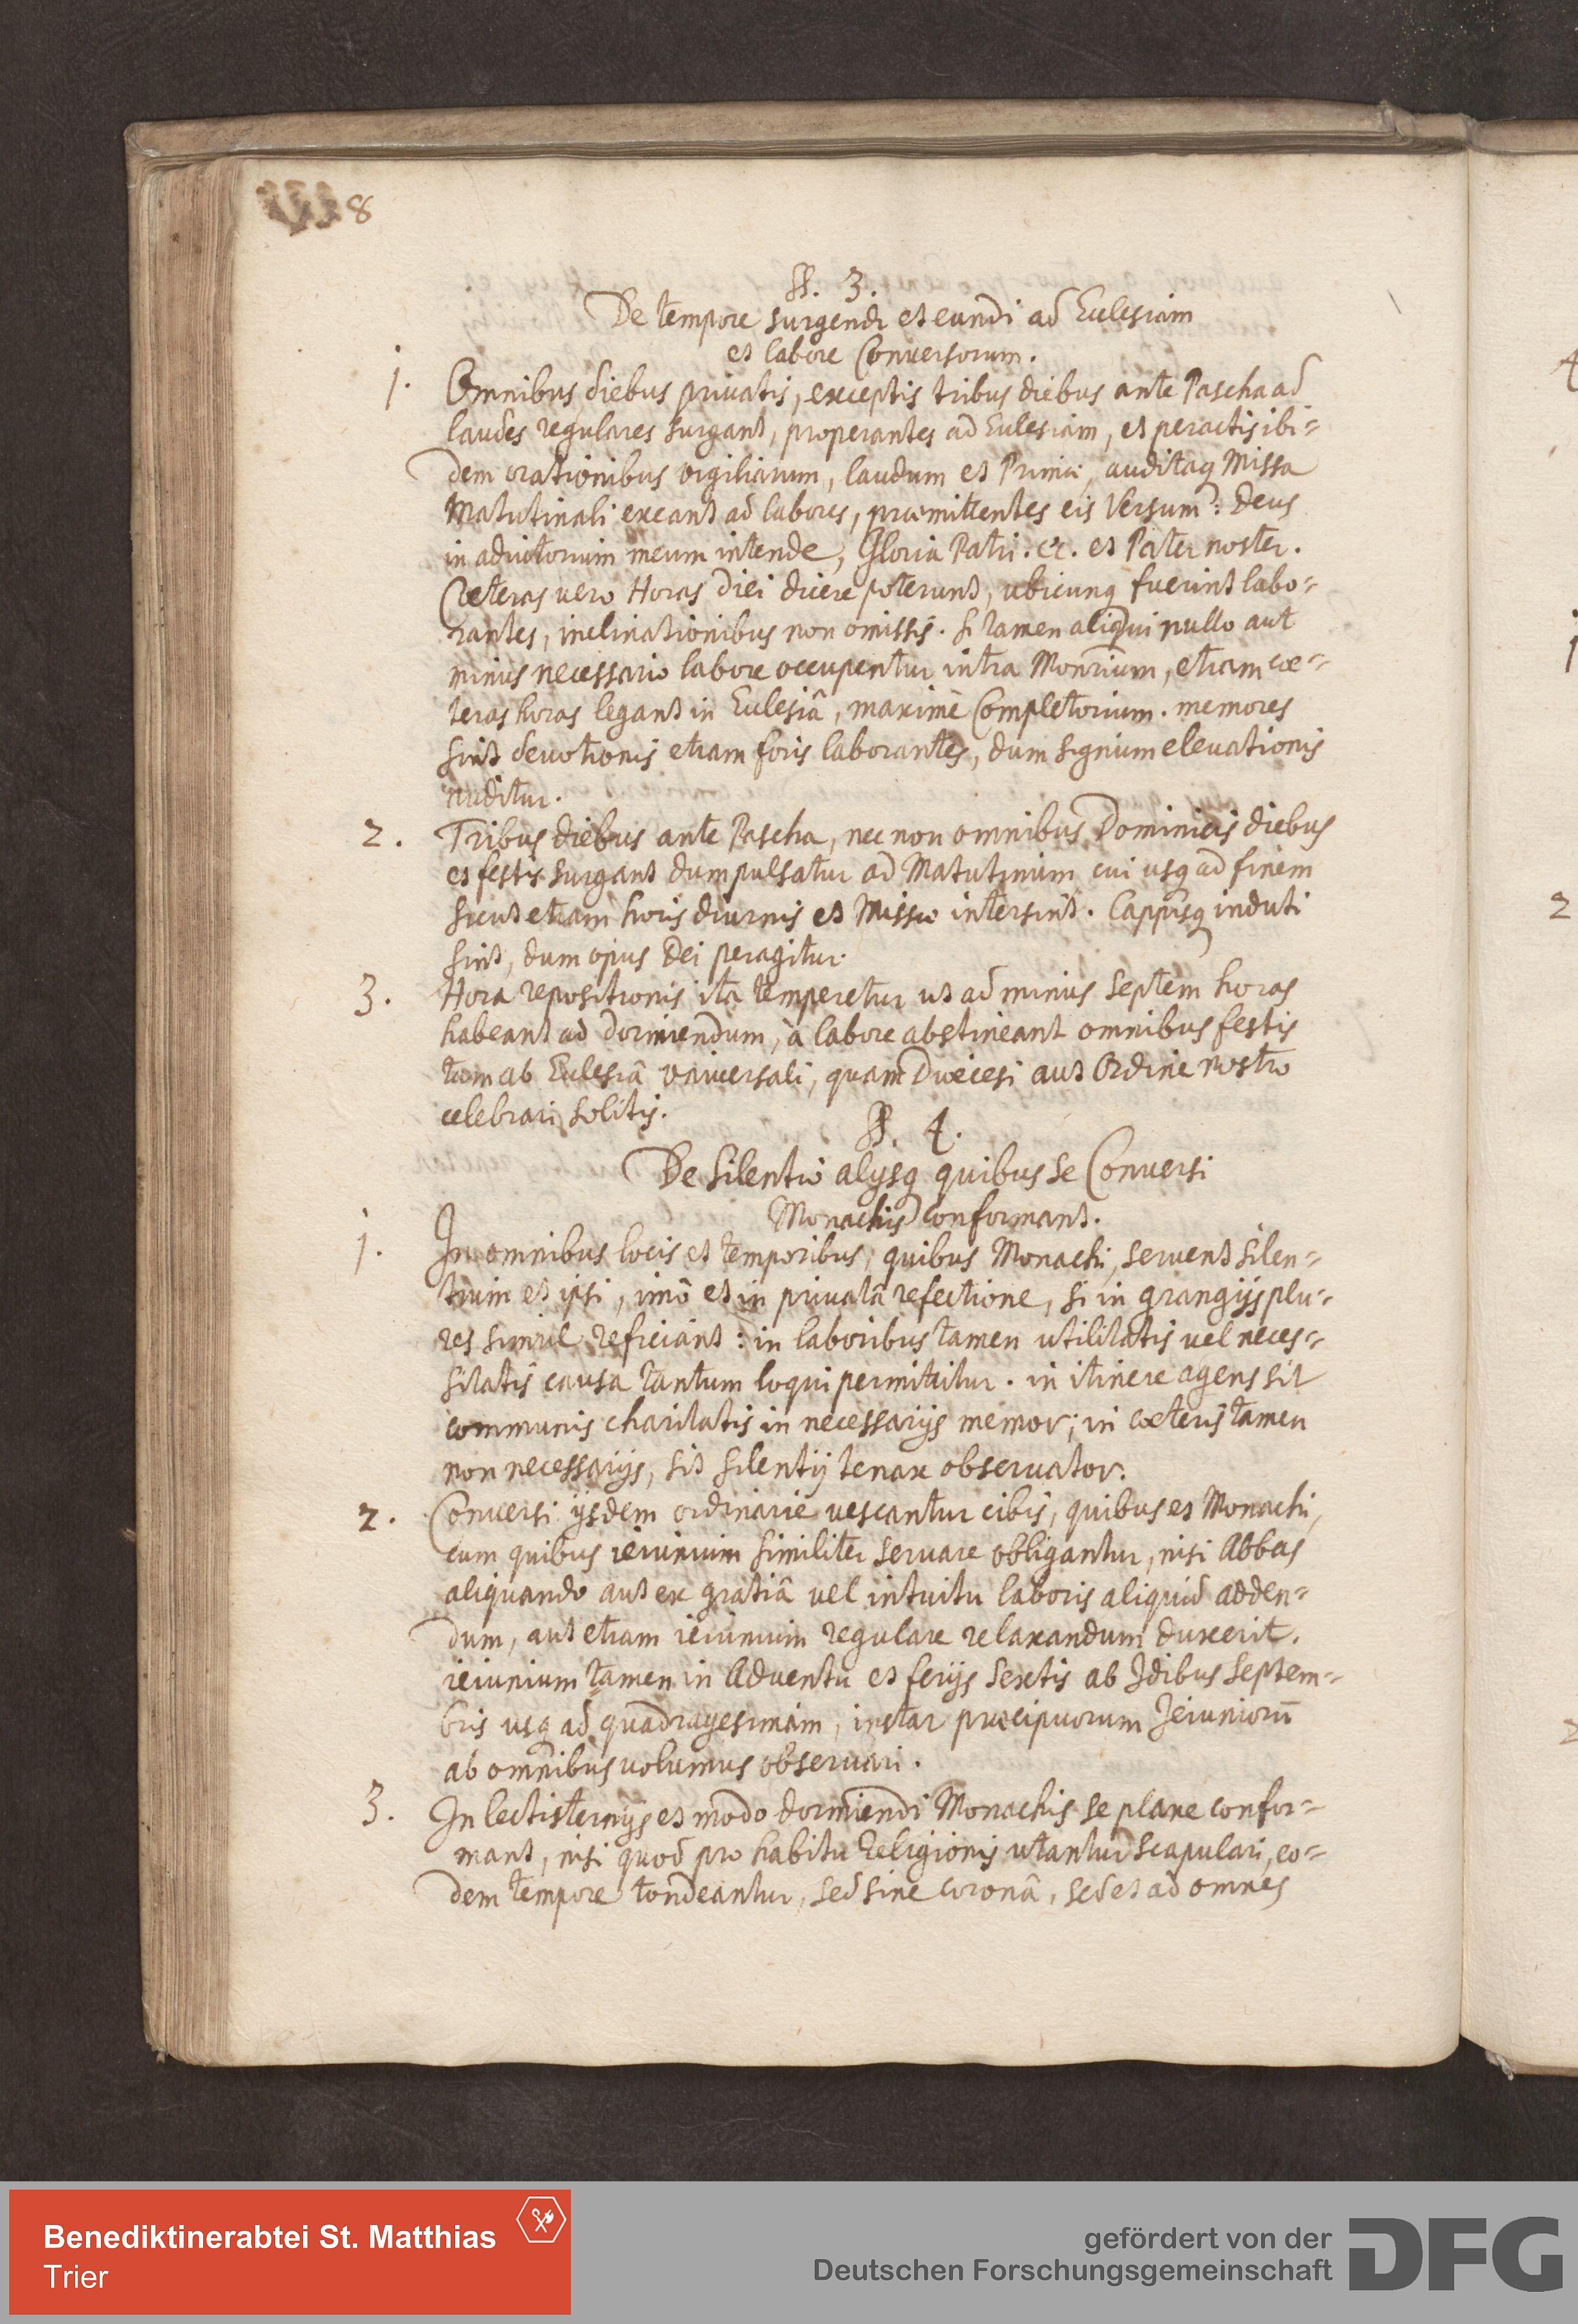 8
§. 3.
De tempore surgendi et eundi ad Ecclesiam
et labore Conuersorum.
1. Omnibus diebus priuatis, exceptis tribus diebus ante Pascha ad
laudes regulares surgant, properantes ad Ecclesiam, et peractis ibi=
dem orationibus vigiliarum, laudum et Primæ, auditaq Missa
Matutinali exeant ad labores, præmittentes eis Versum: Deus
in adiutorium meum intende, Gloria Patri. &c. et Pater noster.
Cæteras uero Horas diei dicere poterunt, ubicunq fuerint labo=
rantes, inclinationibus non omissis. Si tamen aliqui nullo aut
minus necessario labore occupentur intra Monrium, etiam cæ=
teras horas legant in Ecclesiâ, maximè Completorium. memores
sint deuotionis etiam foris laborantes, dum signum eleuationis
auditur.
2. Tribus diebus ante Pascha, nec non omnibus Dominicis diebus
et festis surgant dum pulsatur ad Matutinum cui usq ad finem
sicut etiam horis diurnis et Missæ intersint. Cappisq induti
sint, dum opus Dei peragitur.
3. Hora repositionis ita temperetur ut ad minus septem horas
habeant ad dormiendum, à labore abstineant omnibus festis
tam ab Ecclesiâ vniuersali, quam Diœcesi aut Ordine nostro
celebrari solitis.
§. 4.
De silentio alijsq quibus se Conuersi
Monachis conformant.
1. In omnibus locis et temporibus, quibus Monachi, seruent silen=
tium et ipsi, imò et in priuatâ refectione, si in grangijs plu=
res simul reficiant: in laboribus tamen utilitatis vel neces=
sitatis causa tantum loqui permittitur. in itinere agens sit
communis charitatis in necessarijs memor; in cæteris tamen
non necessarijs, sit silentij tenax obseruator.
2. Conuersi ijsdem ordinariè uescantur cibis, quibus et Monachi,
cum quibus ieiunium similiter seruare obligantur, nisi Abbas
aliquando aut ex gratiâ uel intuitu laboris aliquid adden=
dum, aut etiam ieiunium regulare relaxandum duxerit.
ieiunium tamen in Aduentu et ferijs sextis ab Idibus Septem=
bris usq ad quadragesimam, instar præcipuorum Ieiuniorū
ab omnibus uolumus obseruari.
3. In lectisternijs et modo dormiendi Monachis se plane confor=
mant, nisi quod pro habitu Religionis utantur scapulari, eo=
dem tempore tondeantur, sed sine coronâ, sed et ad omnes
Benediktinerabtei St. Matthias
Trier
gefördert von der
Deutschen Forschungsgemeinschaft
DFG